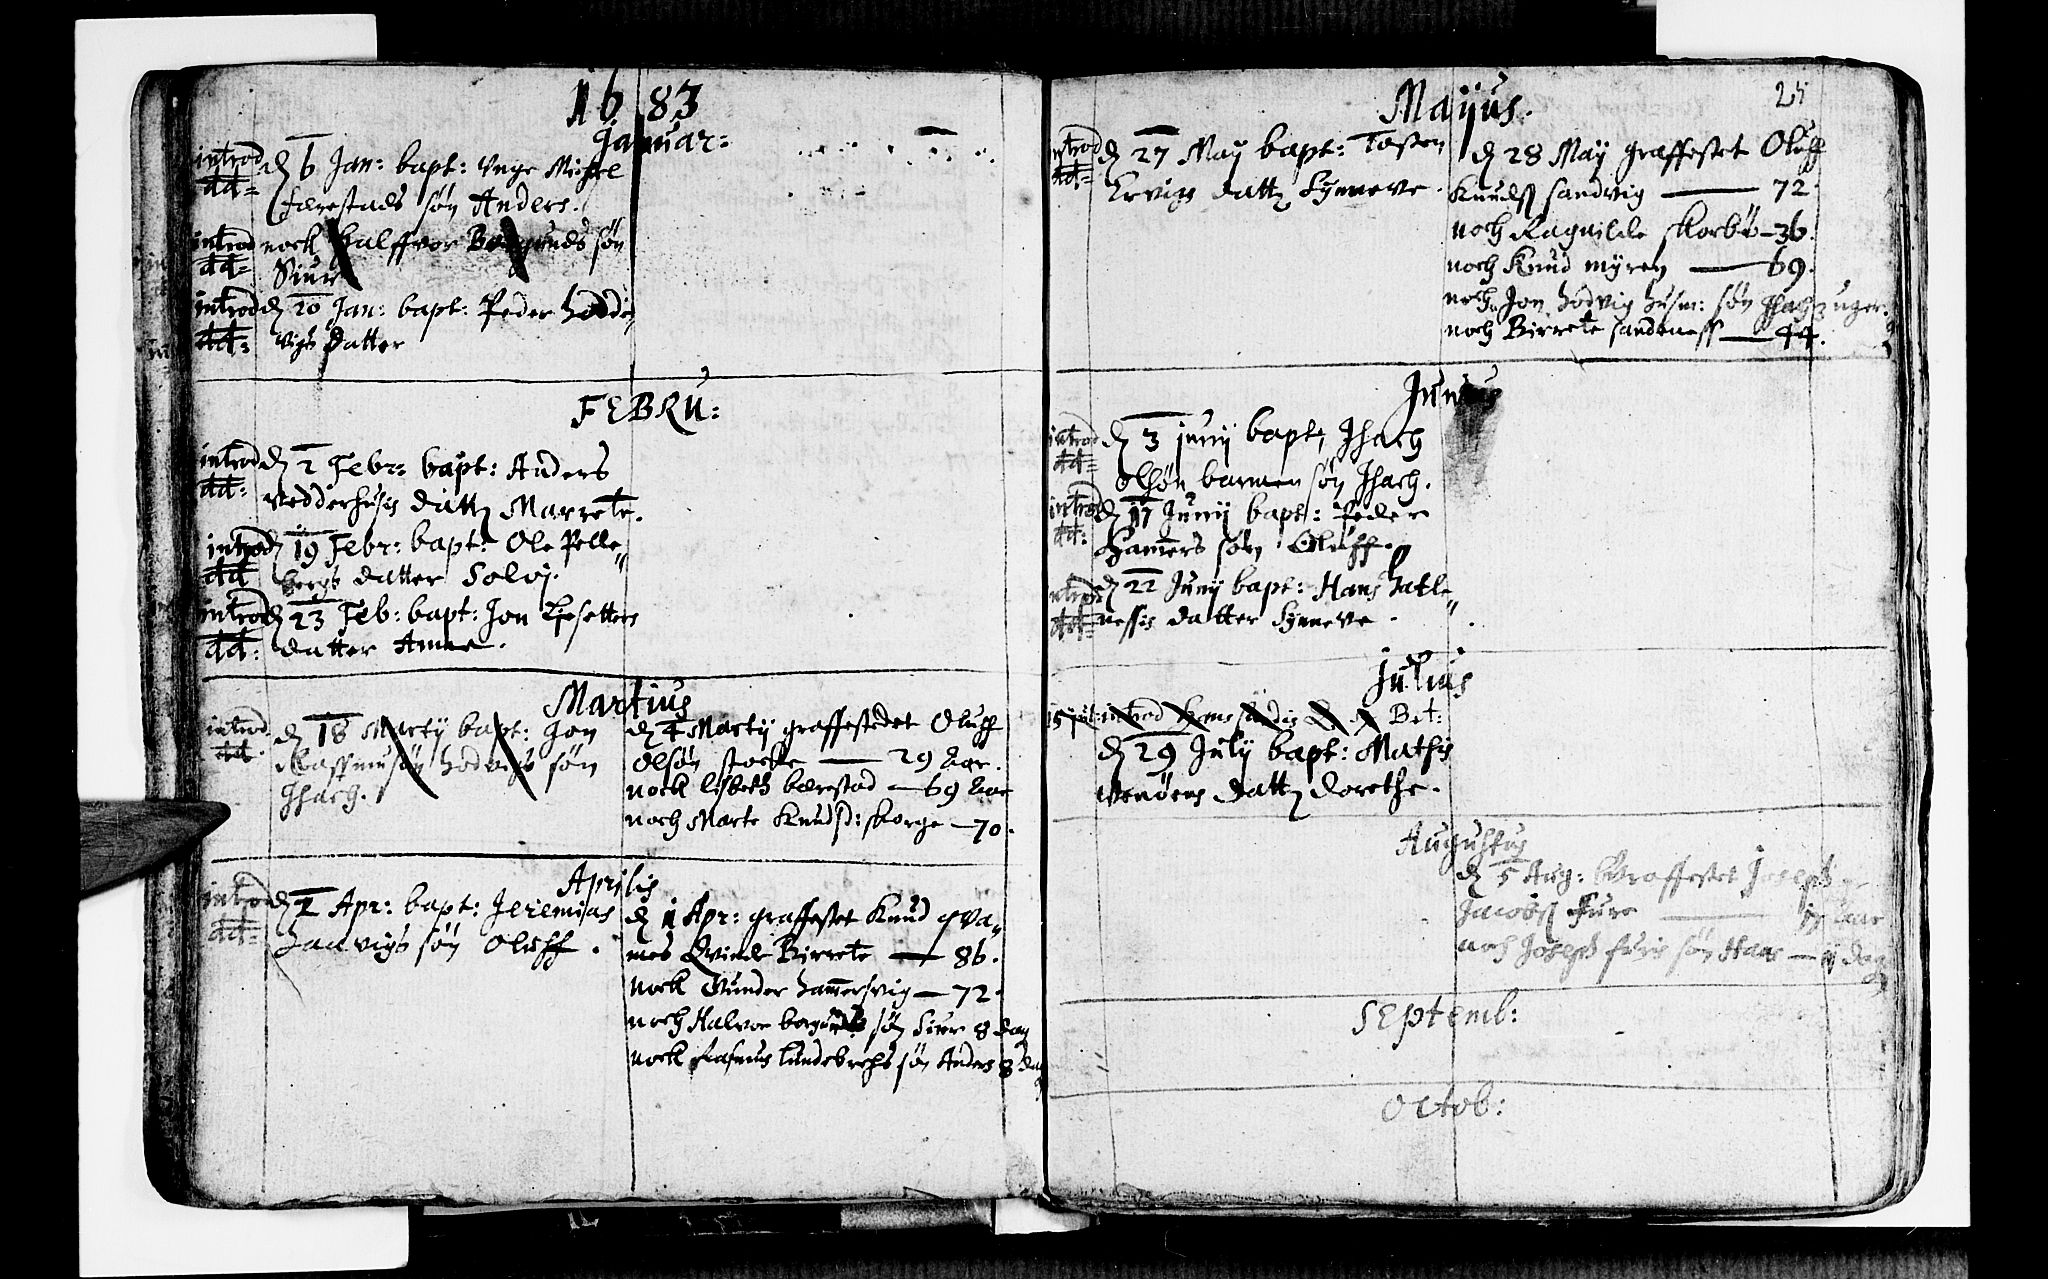 1683
Januar:
introd
dd=
d 6 Jan: bapt: Unge Michel
færestads søn Anders.
introd
dd=
nock Halffvor Borgunds søn
Siur
introd
dd:
d 20 Jan: bapt: Peder Hoddi„
vigs datter
FEBRU:
introd
dd:
d 2 Febr: bapt: Anders
Vedderhusis datt Marrete.
introd
dd
d 19 Febr: bapt: Ole Pelle„
bergs datter Solvj.
introd
dd:
d 23 Feb: bapt: Jon Liesetters
datter Anne.
Martius
introd
dd.
d 18 Martij bapt: Jon
Rassmusøn Hodvigs søn
Jsach.
d 4 Martij graffestedet Oluff
Olsøn stocke — 29 Aar.
nock lisbeth bærestad — 69 Aar
noch Marte Knudsd: skorge — 70.
Aprilis
introd
dd=
d 2 Apr: bapt: Jeremias
Hanvigs søn Oluff.
d 1 Apr: graffestet Knud qva„
mes Qvinde Birrete — 86.
nock Gunder Hammersvig — 72.
noch Halvor borgunds søn Siver 8 dag
nock Rasmus lundebrechs søn Anders 8 dag
Majus.
25
introd
dd=
d 27 May bapt: Tosten
Ervigs datt Synneve.
d 28 May graffestet Oluff
Knuds sandvig — 72.
noch Ragnilde skorbø — 36.
noch Knud myren — 69.
noch Jon Hodvig Husm: søn Jsach 2 uger.
noch Birrete sandeness — 44.
Junius
introd
dd=
d 3 junij bapt, Jsach
Olsøn barmen søn Jsach.
introd
dd:
d 17 Junij bapt: Peder
Hamers søn Oluff.
introd
dd=
d 22 Junij bapt: Hans Hatle„
nessis datter Synneve.
Julius
15 jul: introd Hans Bet:
d 29 July bapt: Mathis
Venøens datt dorethe.
Augustus
d 5 Aug: Graffestet Joseph
Jacobs Fure — Aar
noch Joseph furis søn Hans — dag
SEptemb:
Octob: